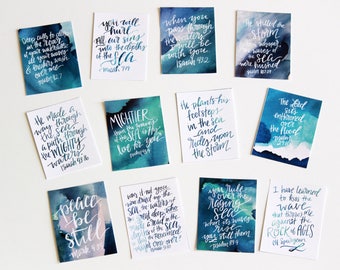 Deep calls to deep
in the roar
of your waterfalls;
all your waves
& breakers wash
over me
Psalm 42:7
you will
hurl
all our sins
into the depths
of the
sea
Micah 7:19
when you
pass through
the waters
I will be
with you
Isaiah 43:2
He stilled the
storm
to a whisper;
the waves
of the sea
were hushed
Psalm 107:29
He made a
way through
the sea,
a path
through the
mighty
waters
Isaiah 43:16
MIGHTIER
than the
waves
of the SEA is His
love for you
He plants his
footsteps
in the sea
and
rides upon
the storm.
The Lord
sits
enthroned
over
the flood
Psalm 29:10
peace
be
still
Mark 4:39
was it not you
who dried up the
sea, the waters of
the great deep, who
made a road in the
depths of the sea
you rule
over the
raging
sea
when its
waves
rise
you still them
Psalm 89:9
I have learned
to kiss the
wave
that throws me
against the
ROCK of AGES